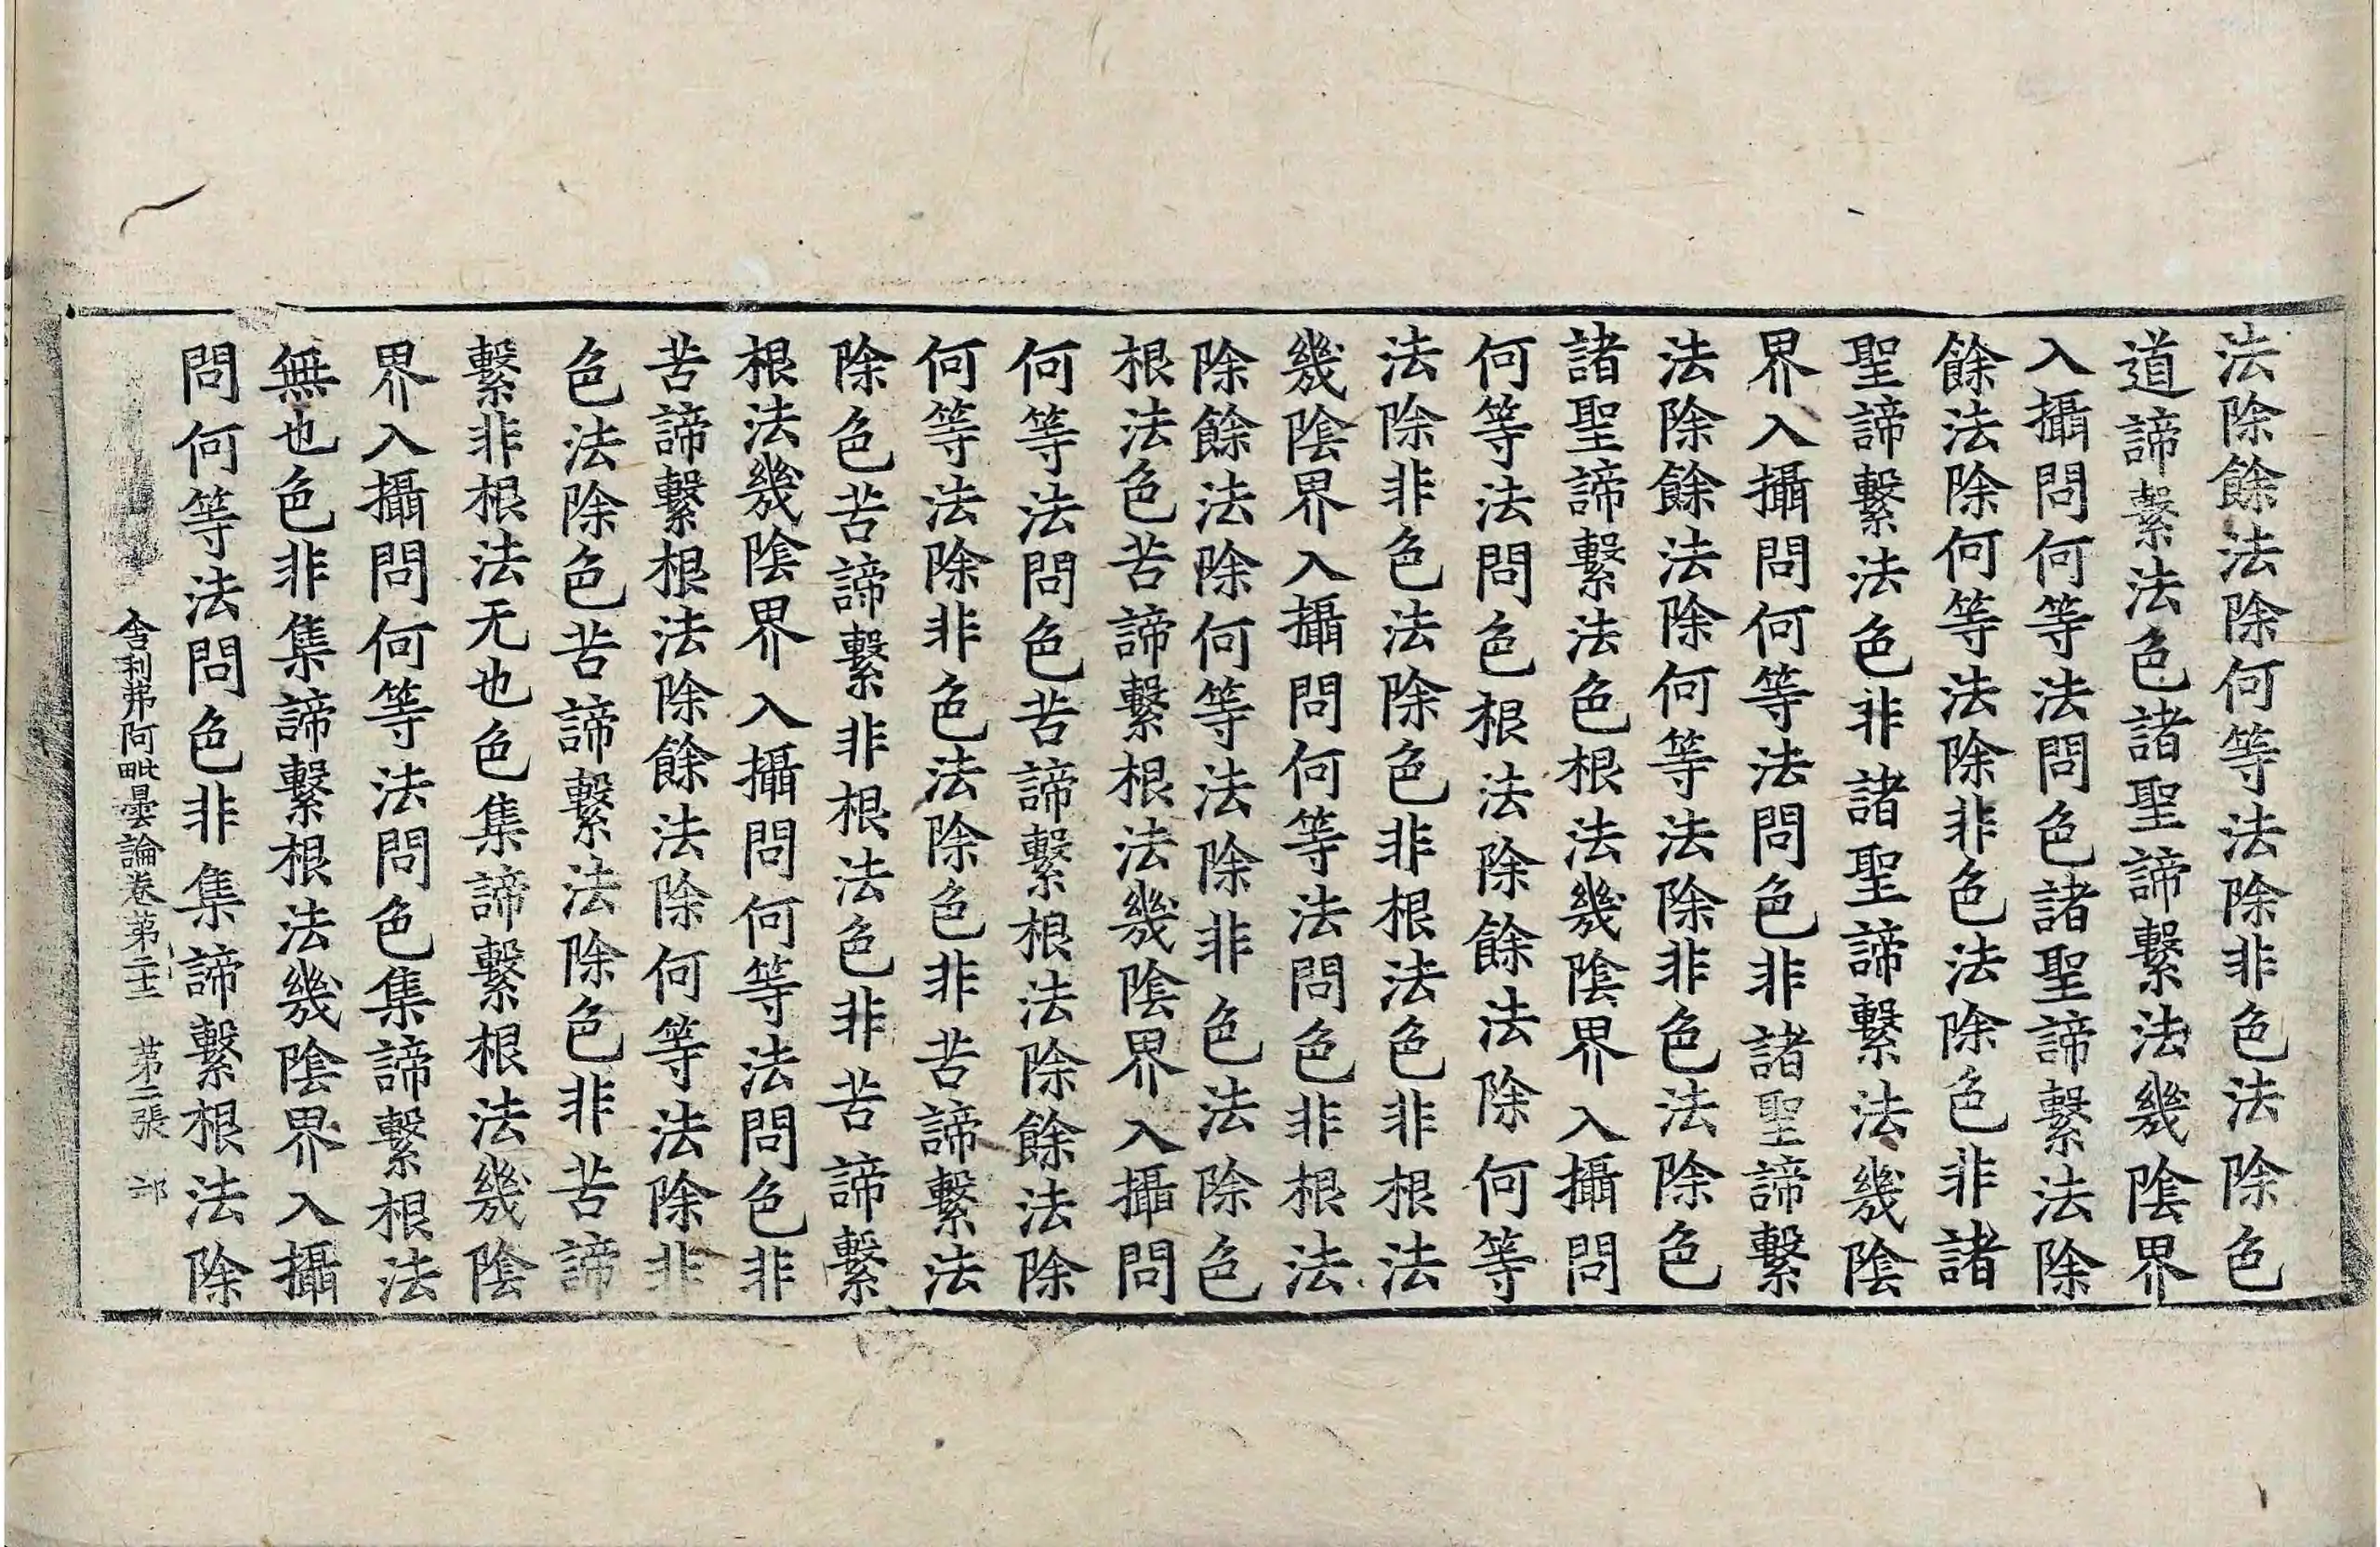 法除餘法除何等法除非色法除色
道諦繫法色諸聖諦繫法幾陰界
入攝問何等法問色諸聖諦繫法除
餘法除何等法除非色法除色非諸
聖諦繫法色非諸聖諦繫法幾陰
界入攝問何等法問色非諸聖諦繫
法除餘法除何等法除非色法除色
諸聖諦繫法色根法幾陰界入攝問
何等法問色根法除餘法除何等
法除非色法除色非根法色非根法
幾陰界入攝問何等法問色非根法
除餘法除何等法除非色法除色
根法色苦諦繫根法幾陰界入攝問
何等法問色苦諦繫根法除餘法除
何等法除非色法除色非苦諦繫法
除色苦諦繫非根法色非苦諦繫
根法幾陰界入攝問何等法問色非
苦諦繫根法除餘法除何等法除非
色法除色苦諦繫法除色非苦諦
繫非根法无也色集諦繫根法幾陰
界入攝問何等法問色集諦繫根法
無也色非集諦繫根法幾陰界入攝
問何等法問色非集諦繫根法除
舍利弗阿毗曇論卷苐二十二 苐二張